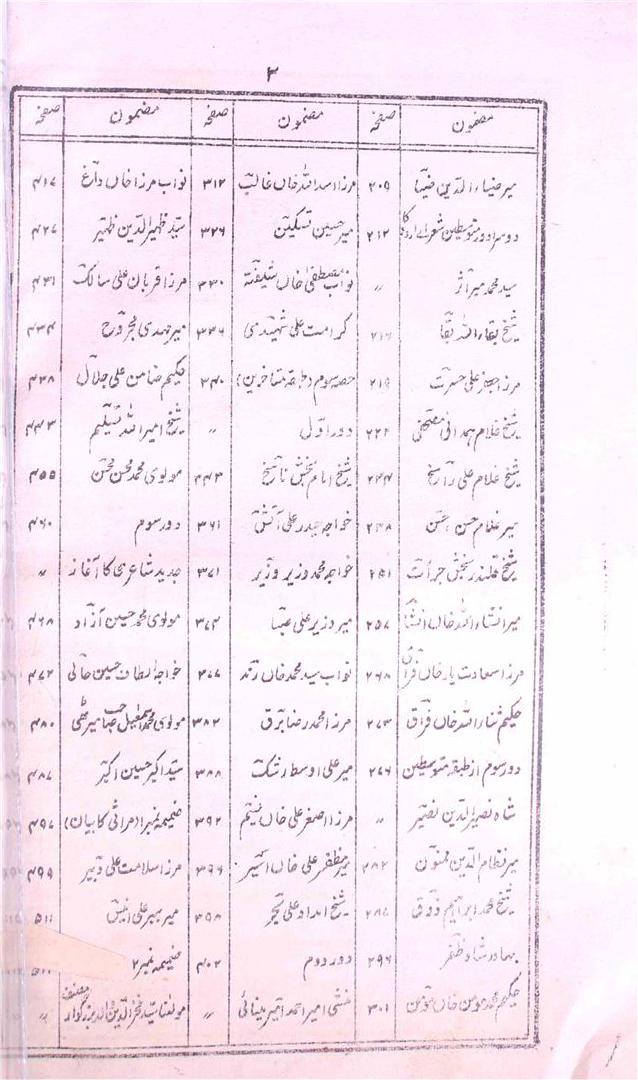 ۳
مضمون صفحہ مضمون صفحہ مضمون صفحہ
میر ضیاء الدین ضیا ۲۰۹ مرزا اسد اللہ خاں غالب ۳۱۲ نواب مرزا خاں داغ ۴۱۷
دوسرا دور متوسطین شعرائے اردو کا ۲۱۲ میر حسین تسکین ۳۲۶ سید ظہیر الدین ظہیر ۴۲۷
سید محمد میر اثر " نواب مصطفیٰ خاں شیفتہ ۳۳۰ مرزا قربان علی سالک ۴۳۱
شیخ بقاء اللہ بقا ۲۱۶ کرامت علی شہیدی ۳۳۶ میر مہدی مجروح ۴۳۴
مرزا جعفر علی حسرت ۲۱۹ حصہ سوم (طبقہ متاخرین) ۳۴۰ حکیم ضامن علی جلال ۴۳۸
شیخ غلام ہمدانی مصحفی ۲۲۲ دور اول " شیخ امیر اللہ تسلیم ۴۴۳
شیخ غلام علی راسخ ۲۴۴ شیخ امام بخش ناسخ ۳۴۳ مولوی محمد محسن محسن ۴۵۵
میر غلام حسن حسن ۲۴۸ خواجہ حیدر علی آتش ۳۶۱ دور سوم ۴۶۰
شیخ قلندر بخش جرأت ۲۵۱ خواجہ محمد وزیر وزیر ۳۷۱ جدید شاعری کا آغاز "
میر انشاء اللہ خاں انشا ۲۵۷ میر وزیر علی صبا ۳۷۴ مولوی محمد حسین آزاد ۴۶۸
مرزا سعادت یار خاں ۲۶۸ نواب سید محمد خاں رند ۳۷۷ خواجہ الطاف حسین حالی ۴۷۲
حکیم ثناء اللہ خاں فراق ۲۷۳ مرزا محمد رضا برق ۳۸۲ مولوی محمد اسمعیل صاحب میرٹھی ۴۸۰
دور سوم از طبقہ متوسطین ۲۷۶ میر علی اوسط رشک ۳۸۸ سید اکبر حسین اکبر ۴۸۷
شاہ نصیر الدین نصیر " مرزا اصغر علی خاں نسیم ۳۹۲ ضمیمہ نمبر ۱ (مراثی کا بیان) ۴۹۷
میر نظام الدین ممنون ۲۸۲ میر مظفر علی خاں اسیر ۳۹۶ مرزا سلامت علی دبیر ۴۹۹
شیخ محمد ابراہیم ذوق ۲۸۷ شیخ امداد علی بحر ۳۹۸ میر ببر علی انیس ۵۱۱
بہادر شاہ ظفر ۲۹۶ دور دوم ۴۰۲ ضمیمہ نمبر ۲
حکیم محمد مومن خاں مومن ۳۰۱ منشی امیر احمد امیر مینائی " مولٰنا سید فخر الدین والد بزرگوار مصنف "